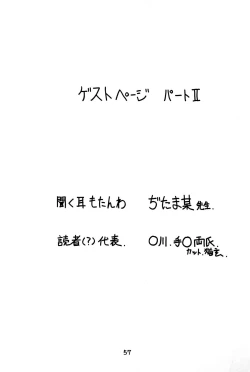 ゲストページ パートⅡ
聞く耳もたんわ ぢたま某先生.
読者(?)代表. 〇川.手〇両氏.
カット.
57